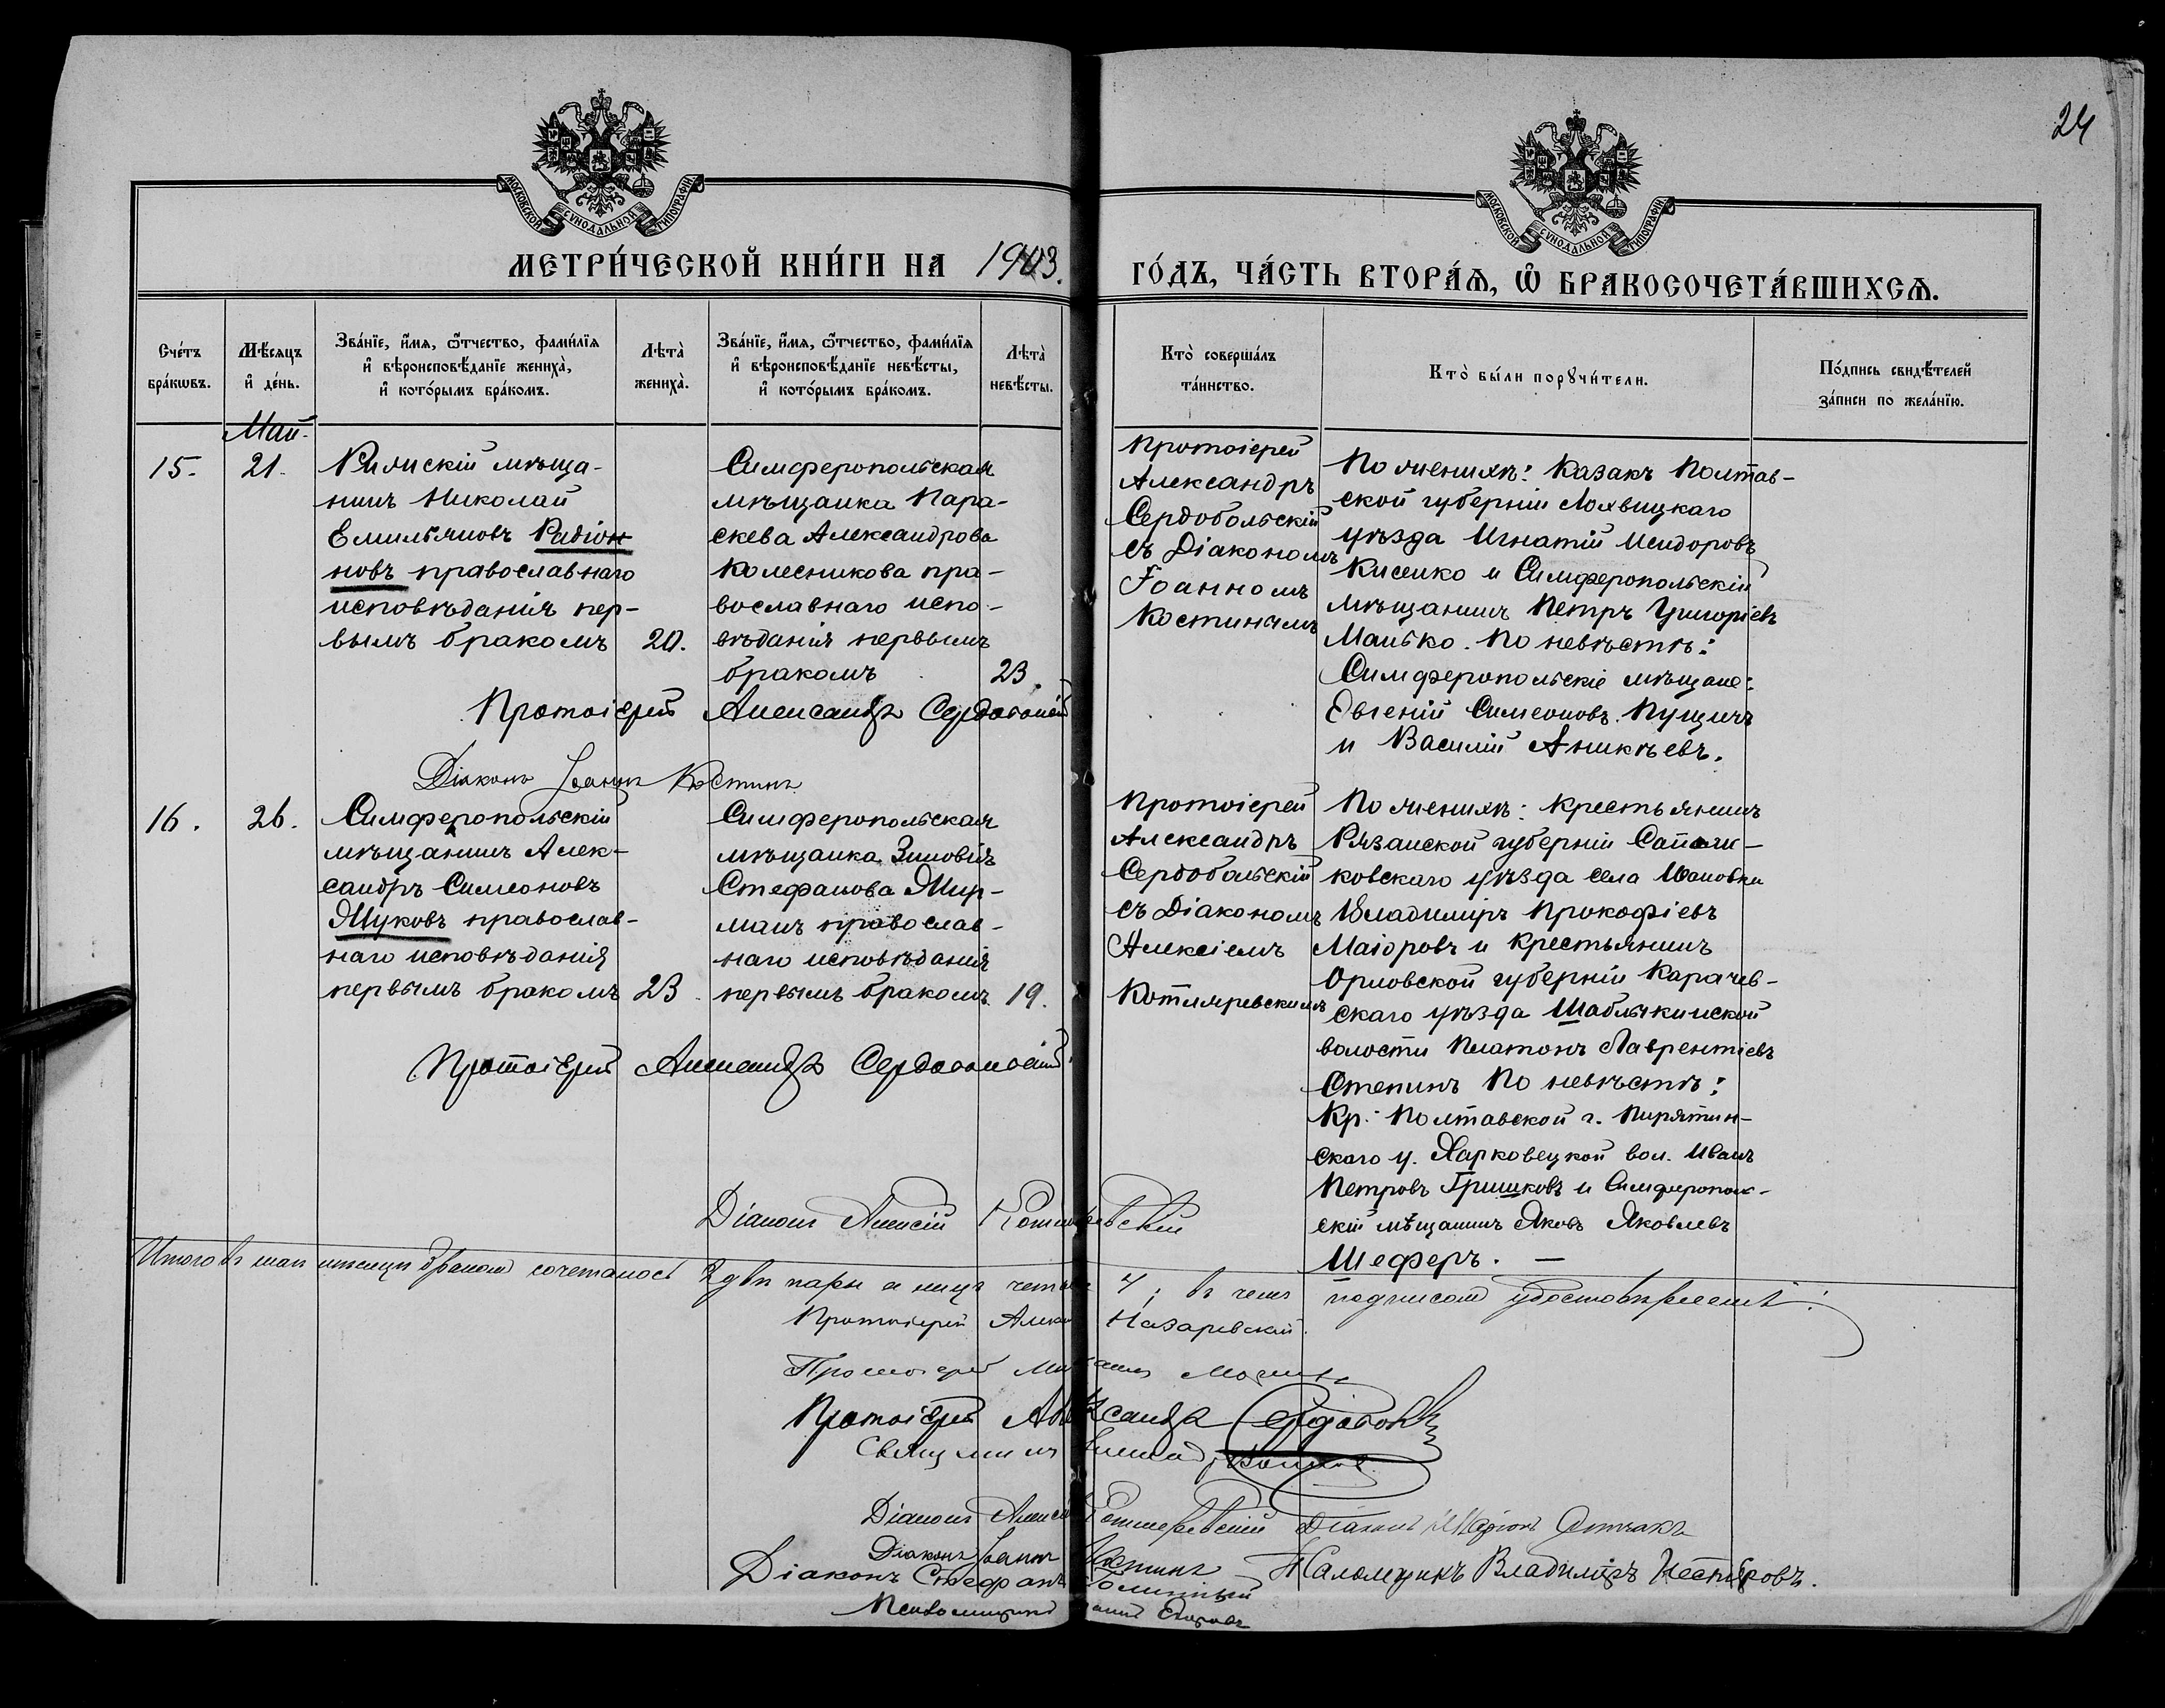 24
МОСКОВСКОЙ СУНОДАЛЬНОЙ ТИПОГРАФІИ
МОСКОВСКОЙ СУНОДАЛЬНОЙ ТИПОГРАФІИ
МЕТРИ́ЧЕСКОЙ КНИ́ГИ НА 1903.
ГО́ДЪ, ЧА́СТЬ ВТОРА́Ѧ, Ѡ҆ БРАКОСОЧЕТА́ВШИХСѦ.
Сче́тъ бра́кѡвъ.
Мѣ́сяцъ и҆ де́нь.
Зва́нїе, и҆́мя, ѻ҆́тчество, фами́лїя
и҆ вѣроисповѣ́данїе жениха̀,
и҆ кото́рымъ бра́комъ.
Лѣта̀ жениха̀.
Зва́нїе, и҆́мя, ѻ҆́тчество, фами́лїя
и҆ вѣроисповѣ́данїе невѣ́сты,
и҆ кото́рымъ бра́комъ.
Лѣта̀ невѣ́сты.
Кто̀ соверша́лъ
та́инство.
Кто̀ бы́ли порꙋчи́тели.
По́дпись свидѣ́телей
за́писи по жела́нїю.
Май.
15.
21.
мѣща-
нинъ Николай
Емильяновъ Радіон
новъ православнаго
исповѣданія пер-
вымъ бракомъ
20.
Симферопольская
мѣщанка Пара-
скева Александрова
Колесникова пра-
вославнаго испо-
вѣданія первымъ
бракомъ
23.
Протоіерей
Александръ
Сердобольскій
съ Діакономъ
Іоанномъ
Костинымъ
По женихѣ: Казакъ Полтав-
ской губерніи Лохвицкаго
уѣзда Игнатій Исидоровъ
Кисенко и Симферопольскій
мѣщанинъ Петръ Григоріевъ
Манько. По невѣстѣ:
Симферопольскіе мѣщане:
Евгеній Симеоновъ Пущинъ
и Василій Аникѣевъ.
Протоіерей Александръ Сердобольскій
Діаконъ Іоаннъ Костинъ
16.
26.
Симферопольскій
мѣщанинъ Алек-
сандръ Симеоновъ
Жуковъ православ-
наго исповѣданія
первымъ бракомъ
23
Симферопольская
мѣщанка Зиновія
Стефанова Жир-
манъ православ-
наго исповѣданія
первымъ бракомъ
19.
Протоіерей
Александръ
Сердобольскій
съ Діакономъ
Алексіемъ
Котляревскимъ
По женихѣ: Крестьянинъ
Рязанской губерніи
ковскаго уѣзда села Ивановки
Владимиръ Прокофіевъ
Маіоровъ и крестьянинъ
Орловской губерніи Карачев-
скаго уѣзда Шаблыкинской
волости Платонъ Лаврентіевъ
Степинъ По невѣстѣ:
Кр. Полтавской г. Пирятин-
скаго у. Харковецкой вол. Иванъ
Петровъ Гришковъ и Симферополь-
скій мѣщанинъ Яковъ Яковлевъ
Шеферъ. —
Протоіерей Александръ Сердобольскій
Діаконъ Алексій Котляревскій
Итого въ маѣ мѣсяцѣ бракомъ сочеталось 2 двѣ пары а лицъ четыре 4; въ чемъ подписомъ удостовѣряемъ:
Протоіерей Назаревскій.
Протоіерей
Протоіерей Александръ Сердобол
Священникъ
Діаконъ Алексій Котляревскій Діаконъ
Діаконъ Іоаннъ Костинъ Псаломщикъ Владиміръ Нестеровъ.
Діаконъ Стефанъ
Псаломщикъ